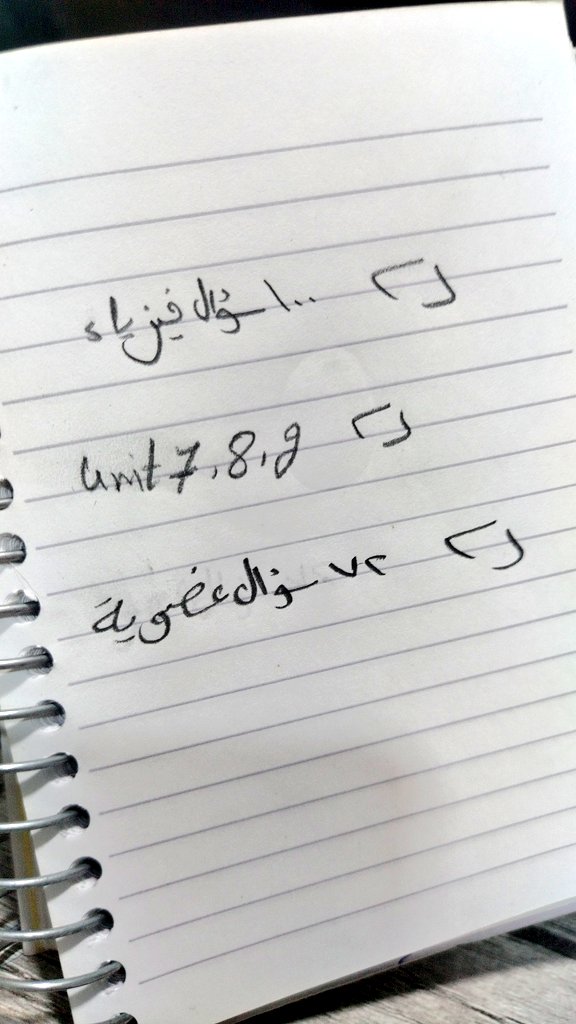 ١٠٠ سؤال فيزياء
Unit 7, 8, 9
٧٢ سؤال عضوية